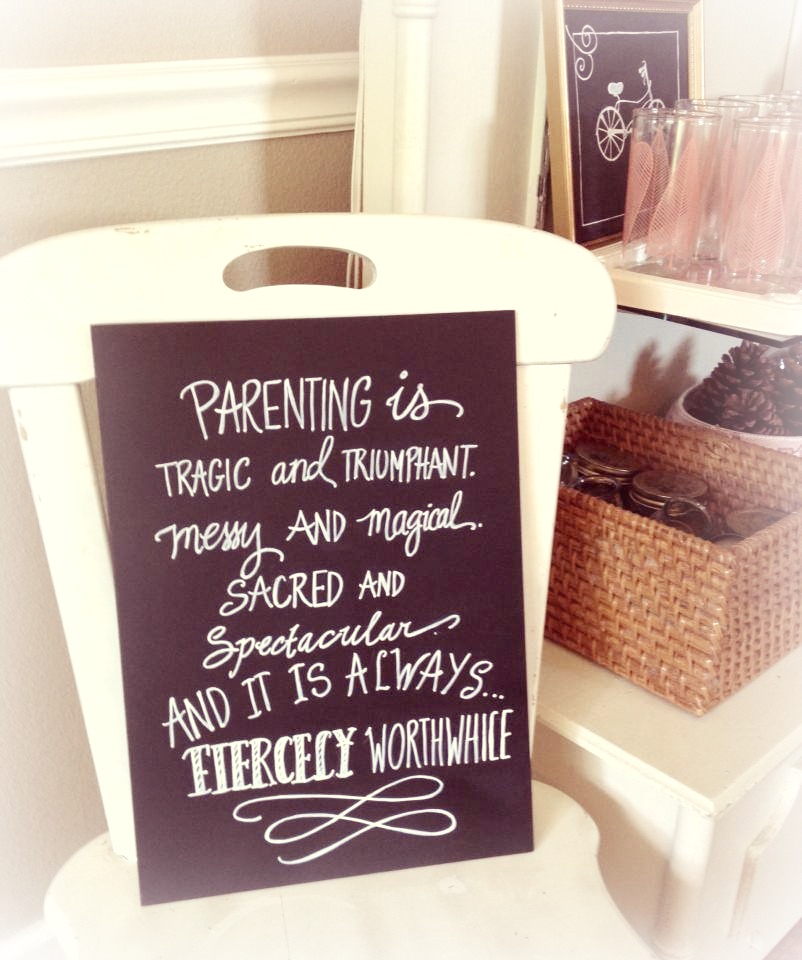 PARENTING is
TRAGIC and TRIUMPHANT.
messy AND magical.
SACRED AND
Spectacular.
AND IT IS ALWAYS...
FIERCELY WORTHWHILE